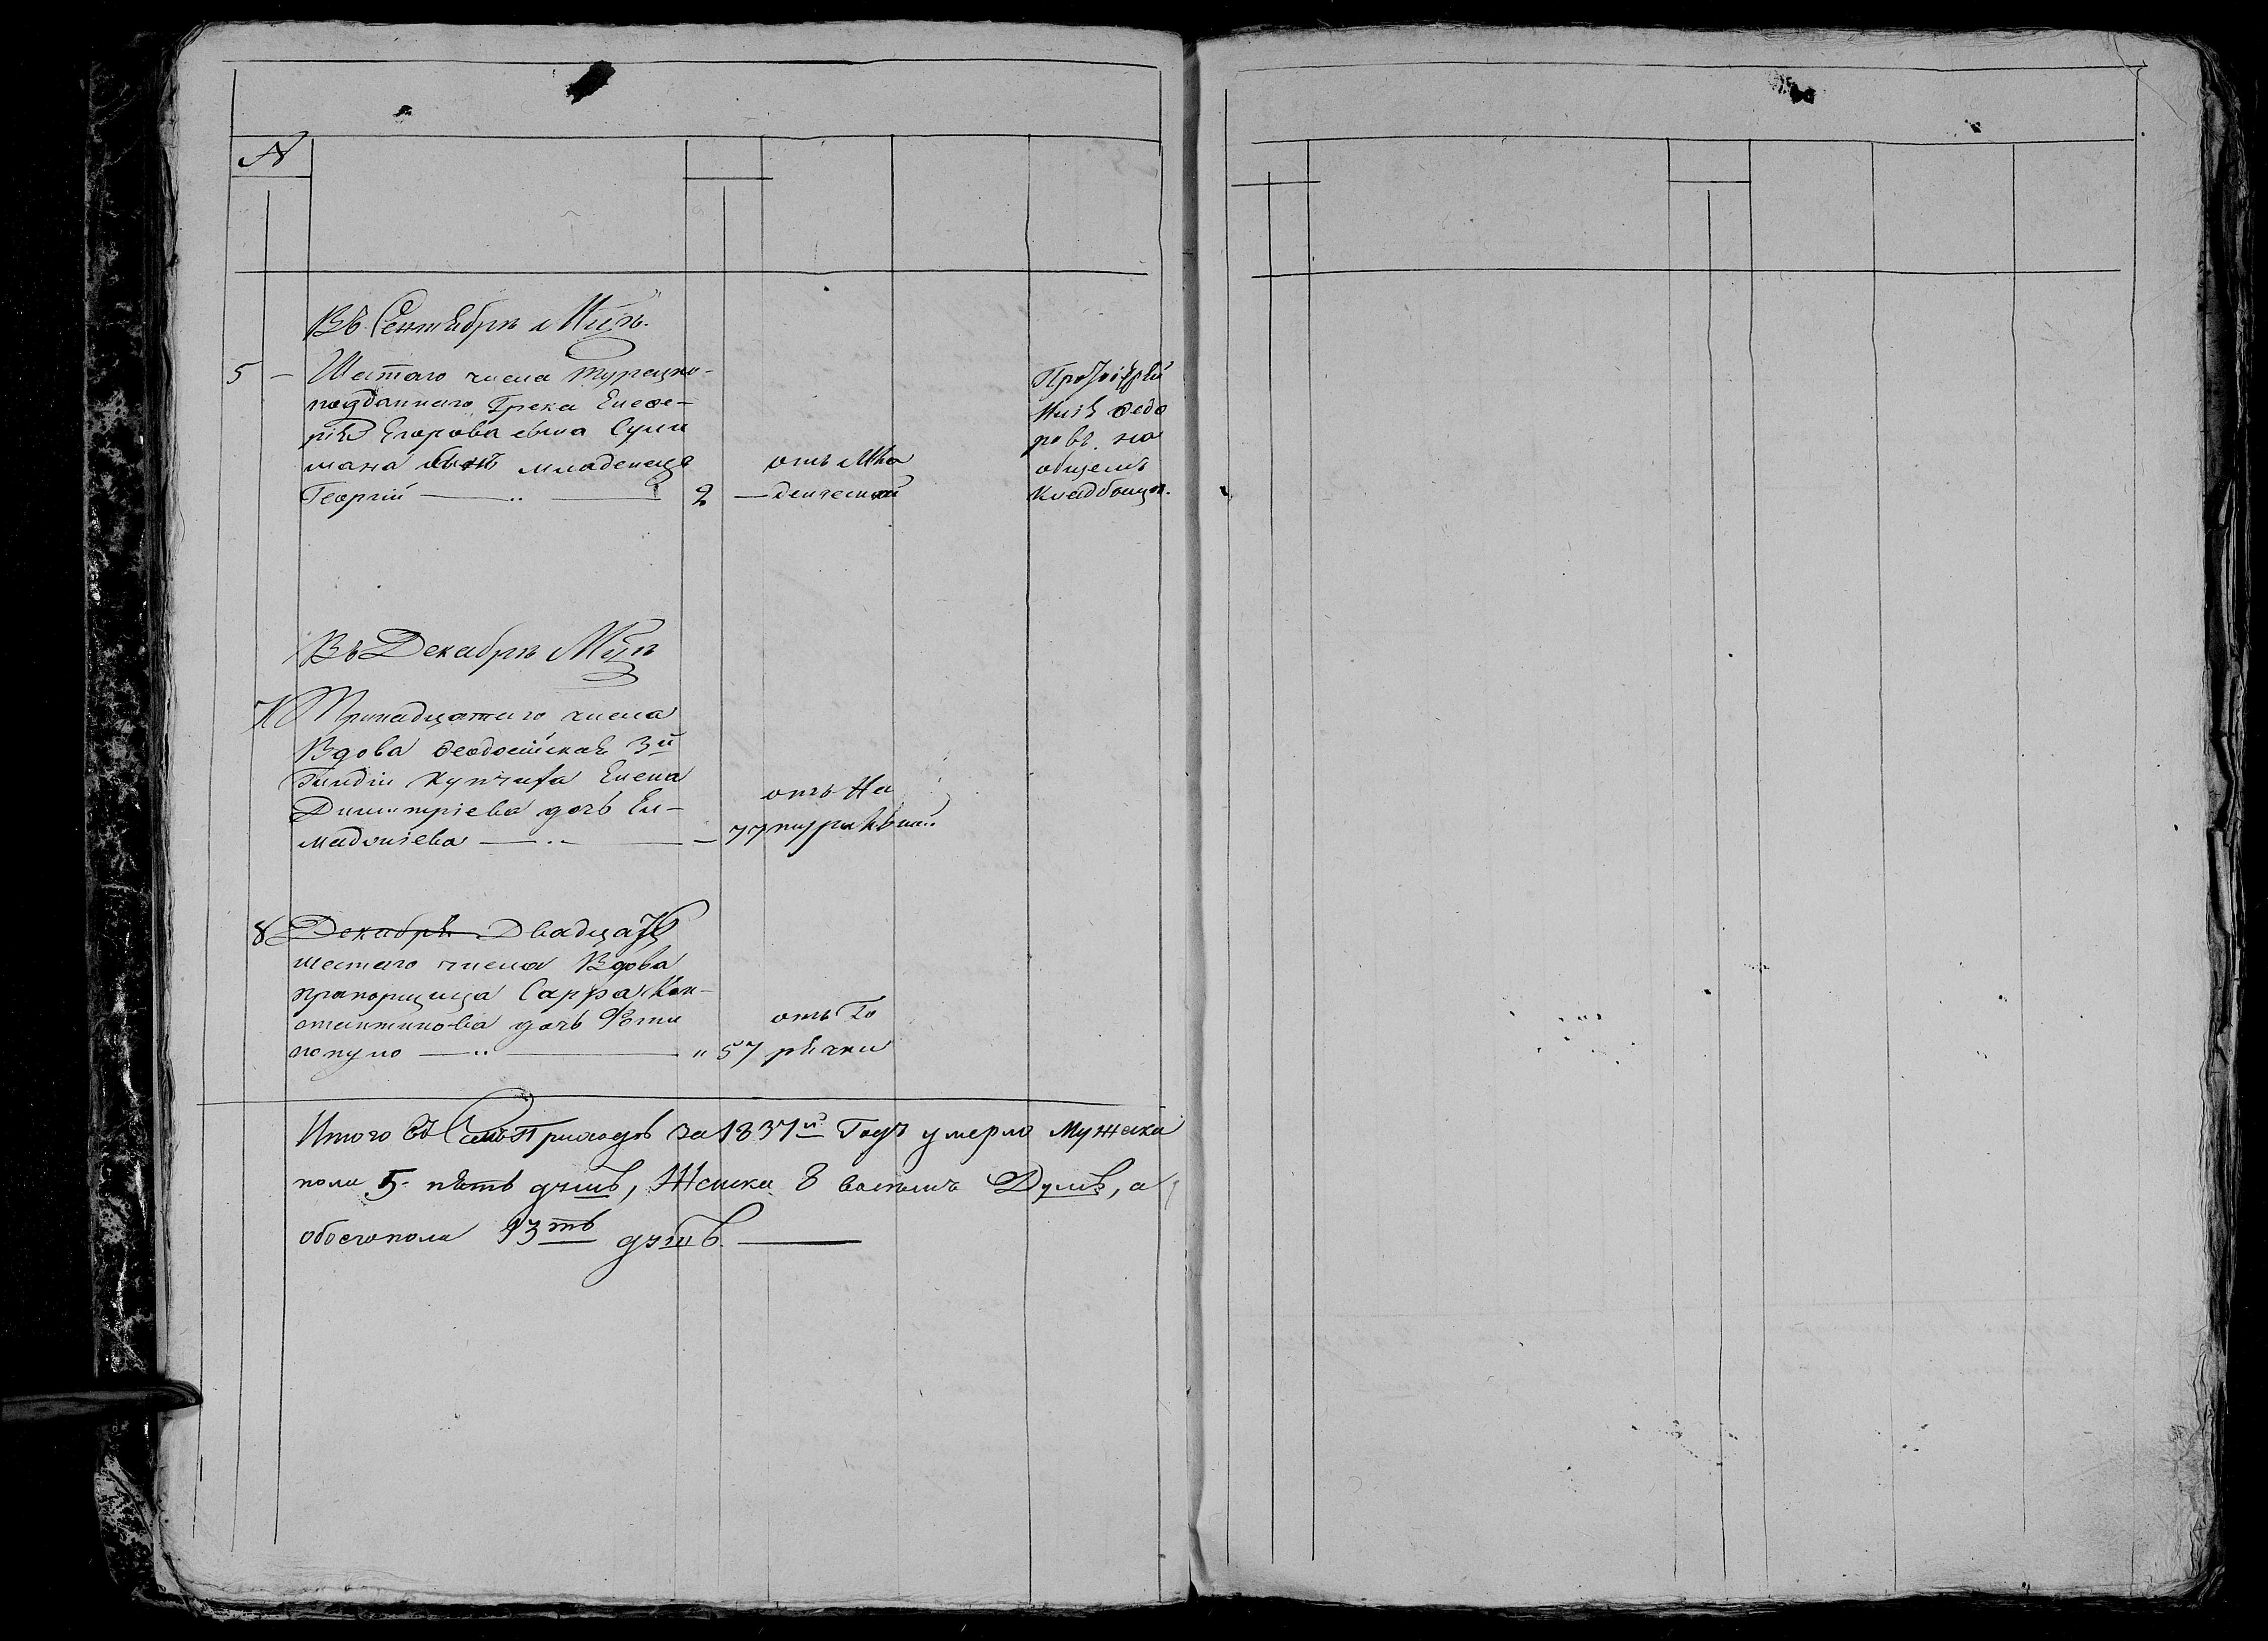 N
Въ Сентябрѣ М҃цѣ.
5 — Шестаго числа Турецко-
подданнаго Грека Елеѳе-
рія Егорова сына
сынъ младенецъ
Георгій — „ — 2 —
отъ Мла
денческой
Протоіерей
Ѳедо
ровъ на
общемъ
кладбищѣ.
Въ Декабрѣ М҃цѣ
7 Тринадцатаго числа
Вдова Ѳеодосійская 3й
Гилдіи купчиха Елена
Димитріева дочь Ел-
— „ — — 77
отъ На
8 Декабря Двадцать
шестаго числа Вдова
прапорщица Сарра Кон-
стантинова дочь Фоти
пуло — „ — „ 57
отъ Го
рячки
Итого въ Семъ Приходѣ за 1837й Годъ умерло Мужска
пола 5 пять душъ, Женска 8 восемь Душъ, а
обоего пола 13ть душъ. —